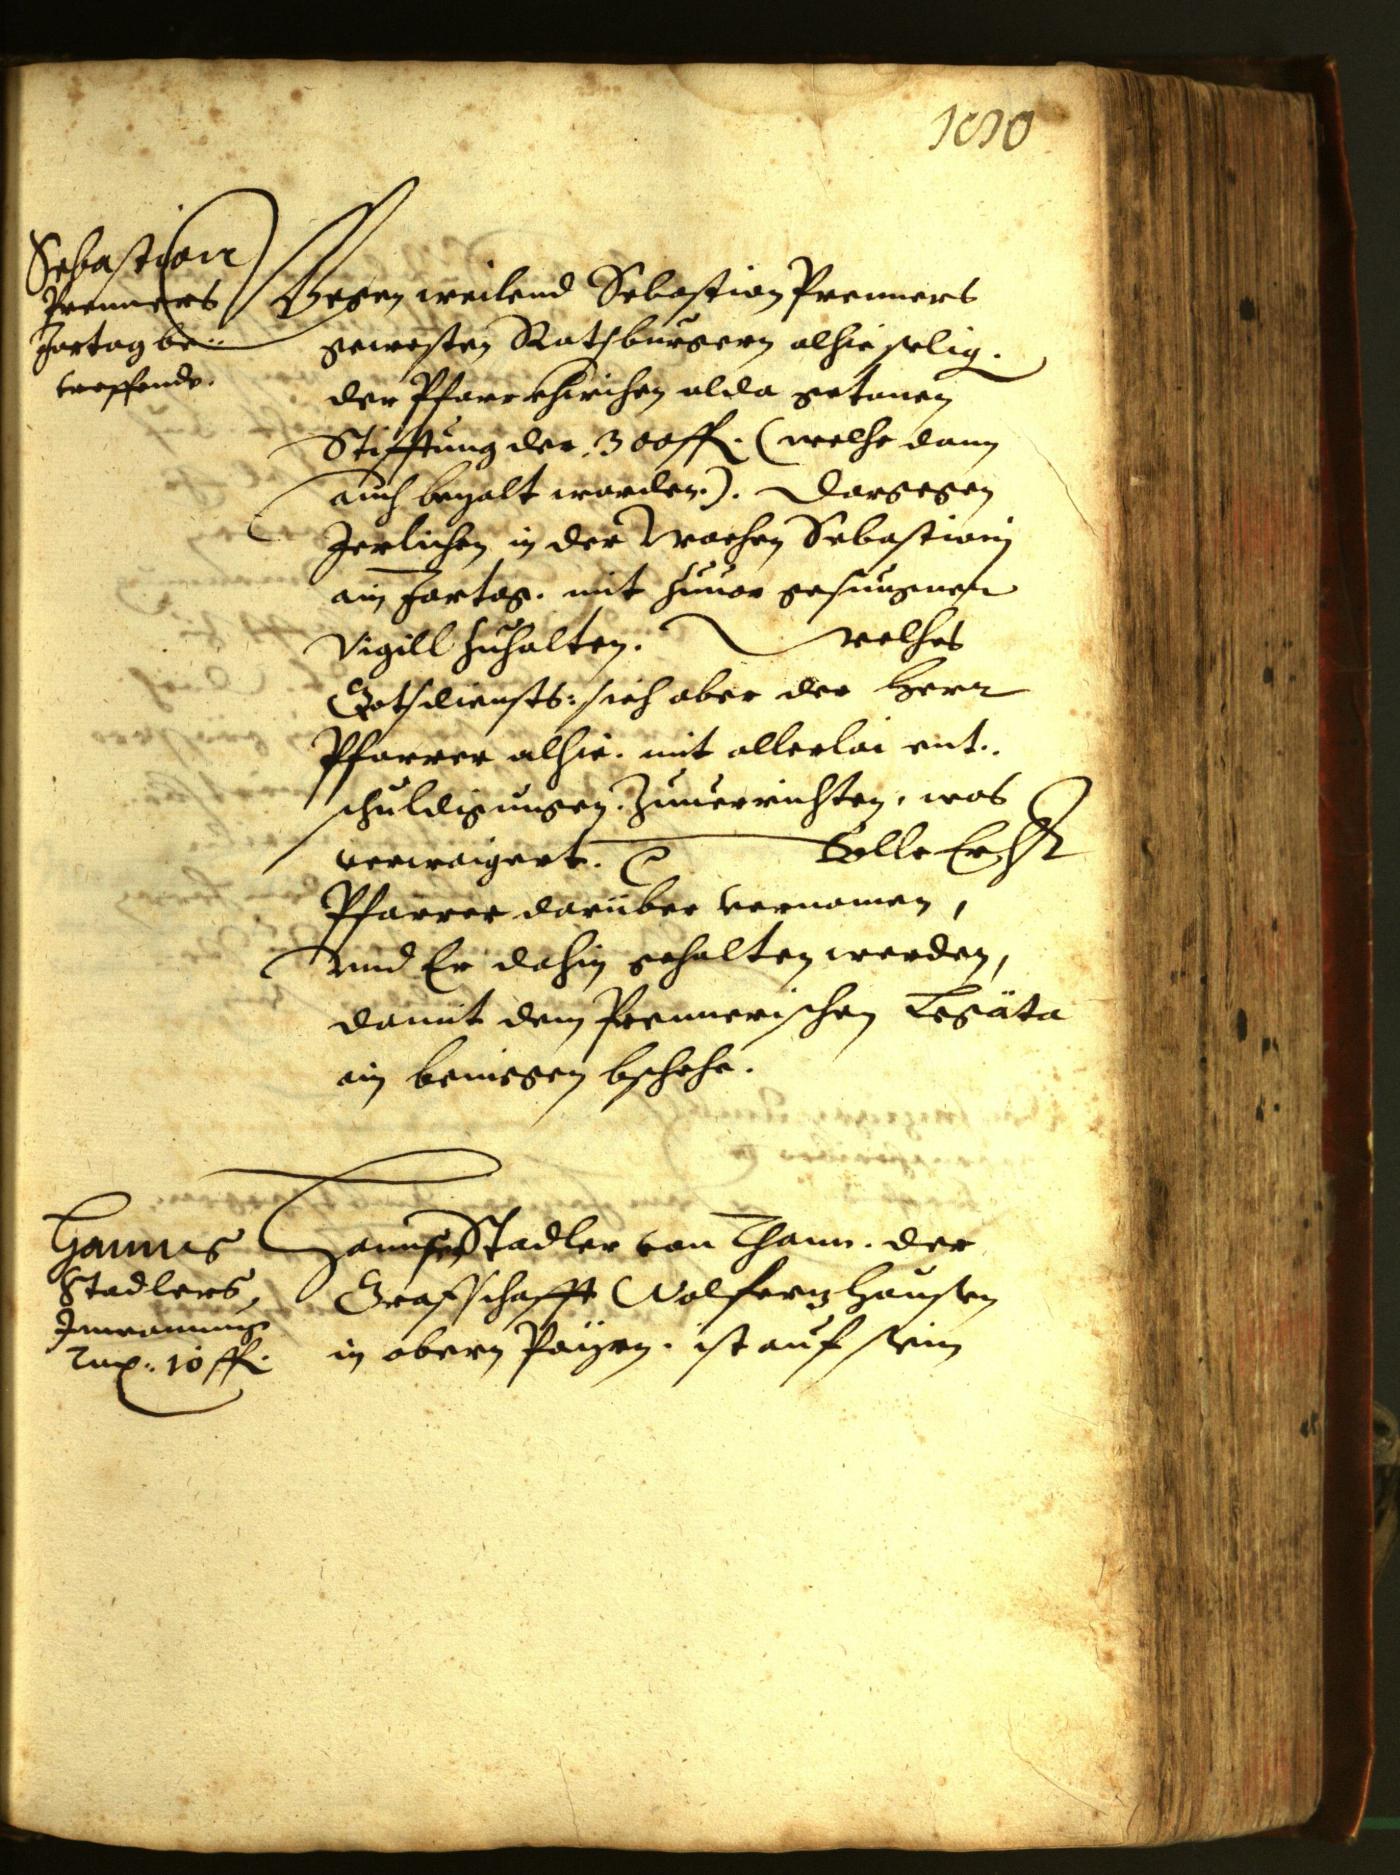 1010
Sebastian
Prenners
Jartag be¬
treffende.
Wegen weilend Sebastian Prenners
gewesten Rathsburgern alhie selig.
der Pfarrkhirchen alda getanen
Stifftung der 300 fl. (welhe dann
auch bezalt worden). Dargegen
Jerlichen in der Wochen Sebastiani
ain Jartag. mit zuuor gesungner
Vigill zuhalten. welhes
Gotsdiensts: sich aber der Herr
Pfarrer alhie. mit allerlai ent¬
schuldigungen. zuuerrichten. was
verwaigert. Solle Er H
Pfarrer darüber vernomen,
und Er dahin gehalten werden,
damit dem Prennerischen Legäta
ain beniegen bschehe.
Hannes
Stadlers,
Inwonung
Tax. 10 fl.
Hanns Stadler von Thann. der
Grafschafft Wolfertzhausen
in obern Payrn. ist auf sein